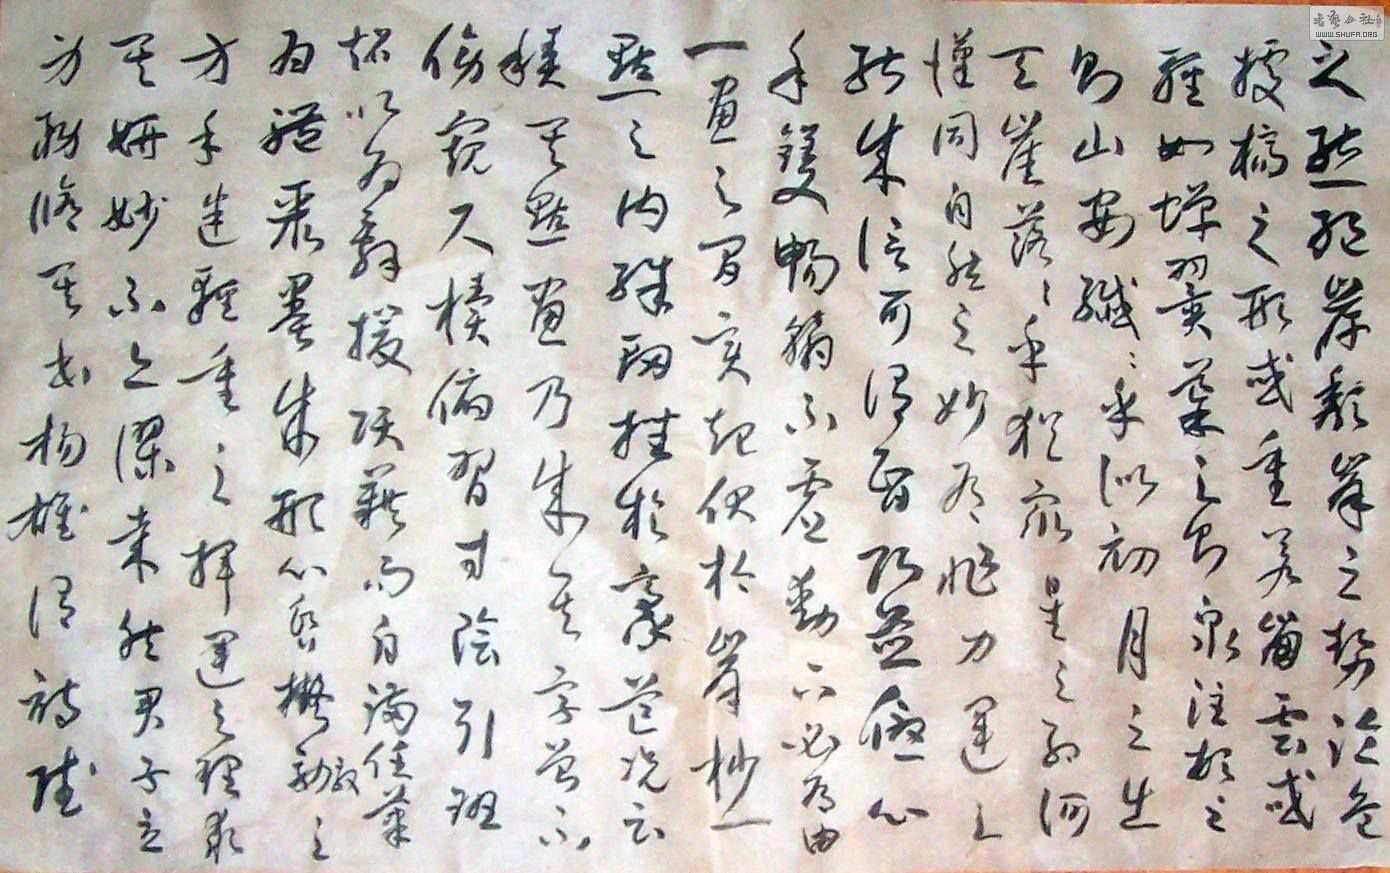 之態絕岸頹峰之勢臨危
據槁之形或重若崩雲或
輕如蟬翼導之則泉注頓之
則山安纖纖乎似初月之出
天崖落落乎猶眾星之列河
漢同自然之妙有非力運之
能成信可謂智巧兼優心
手雙暢翰不虛動下必有由
一畫之間變起伏於峰杪一
點之內殊衄挫於豪芒況云
積其點畫乃成其字曾不
傍窺尺櫝俯習寸陰引班
超以為辭援項籍而自滿任筆
為體聚墨成形心昏擬效之
方手迷輕重之揮運之理求
其妍妙不亦謬哉然君子立
身務修其本揚雄謂詩賦
書藝公社
WWW.SHUFA.ORG